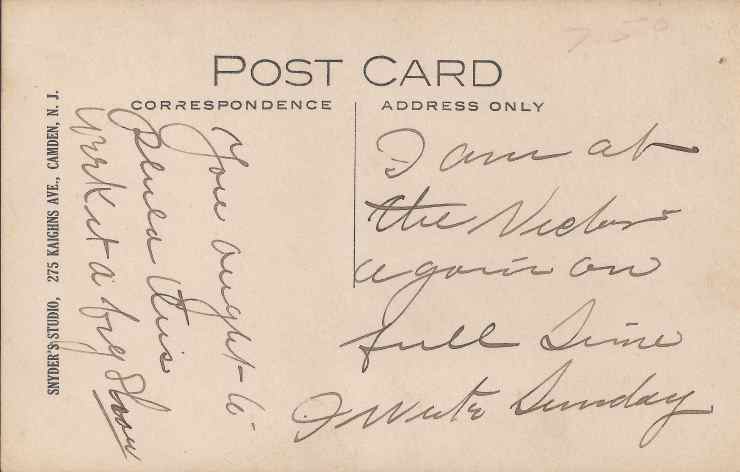 7.50
POST CARD
CORRESPONDENCE
ADDRESS ONLY
SNYDER'S STUDIO, 275 KAIGHNS AVE., CAMDEN, N. J.
You ought to
this
a big Show
I am at
the Victor
again on
full Time
I Write Sunday